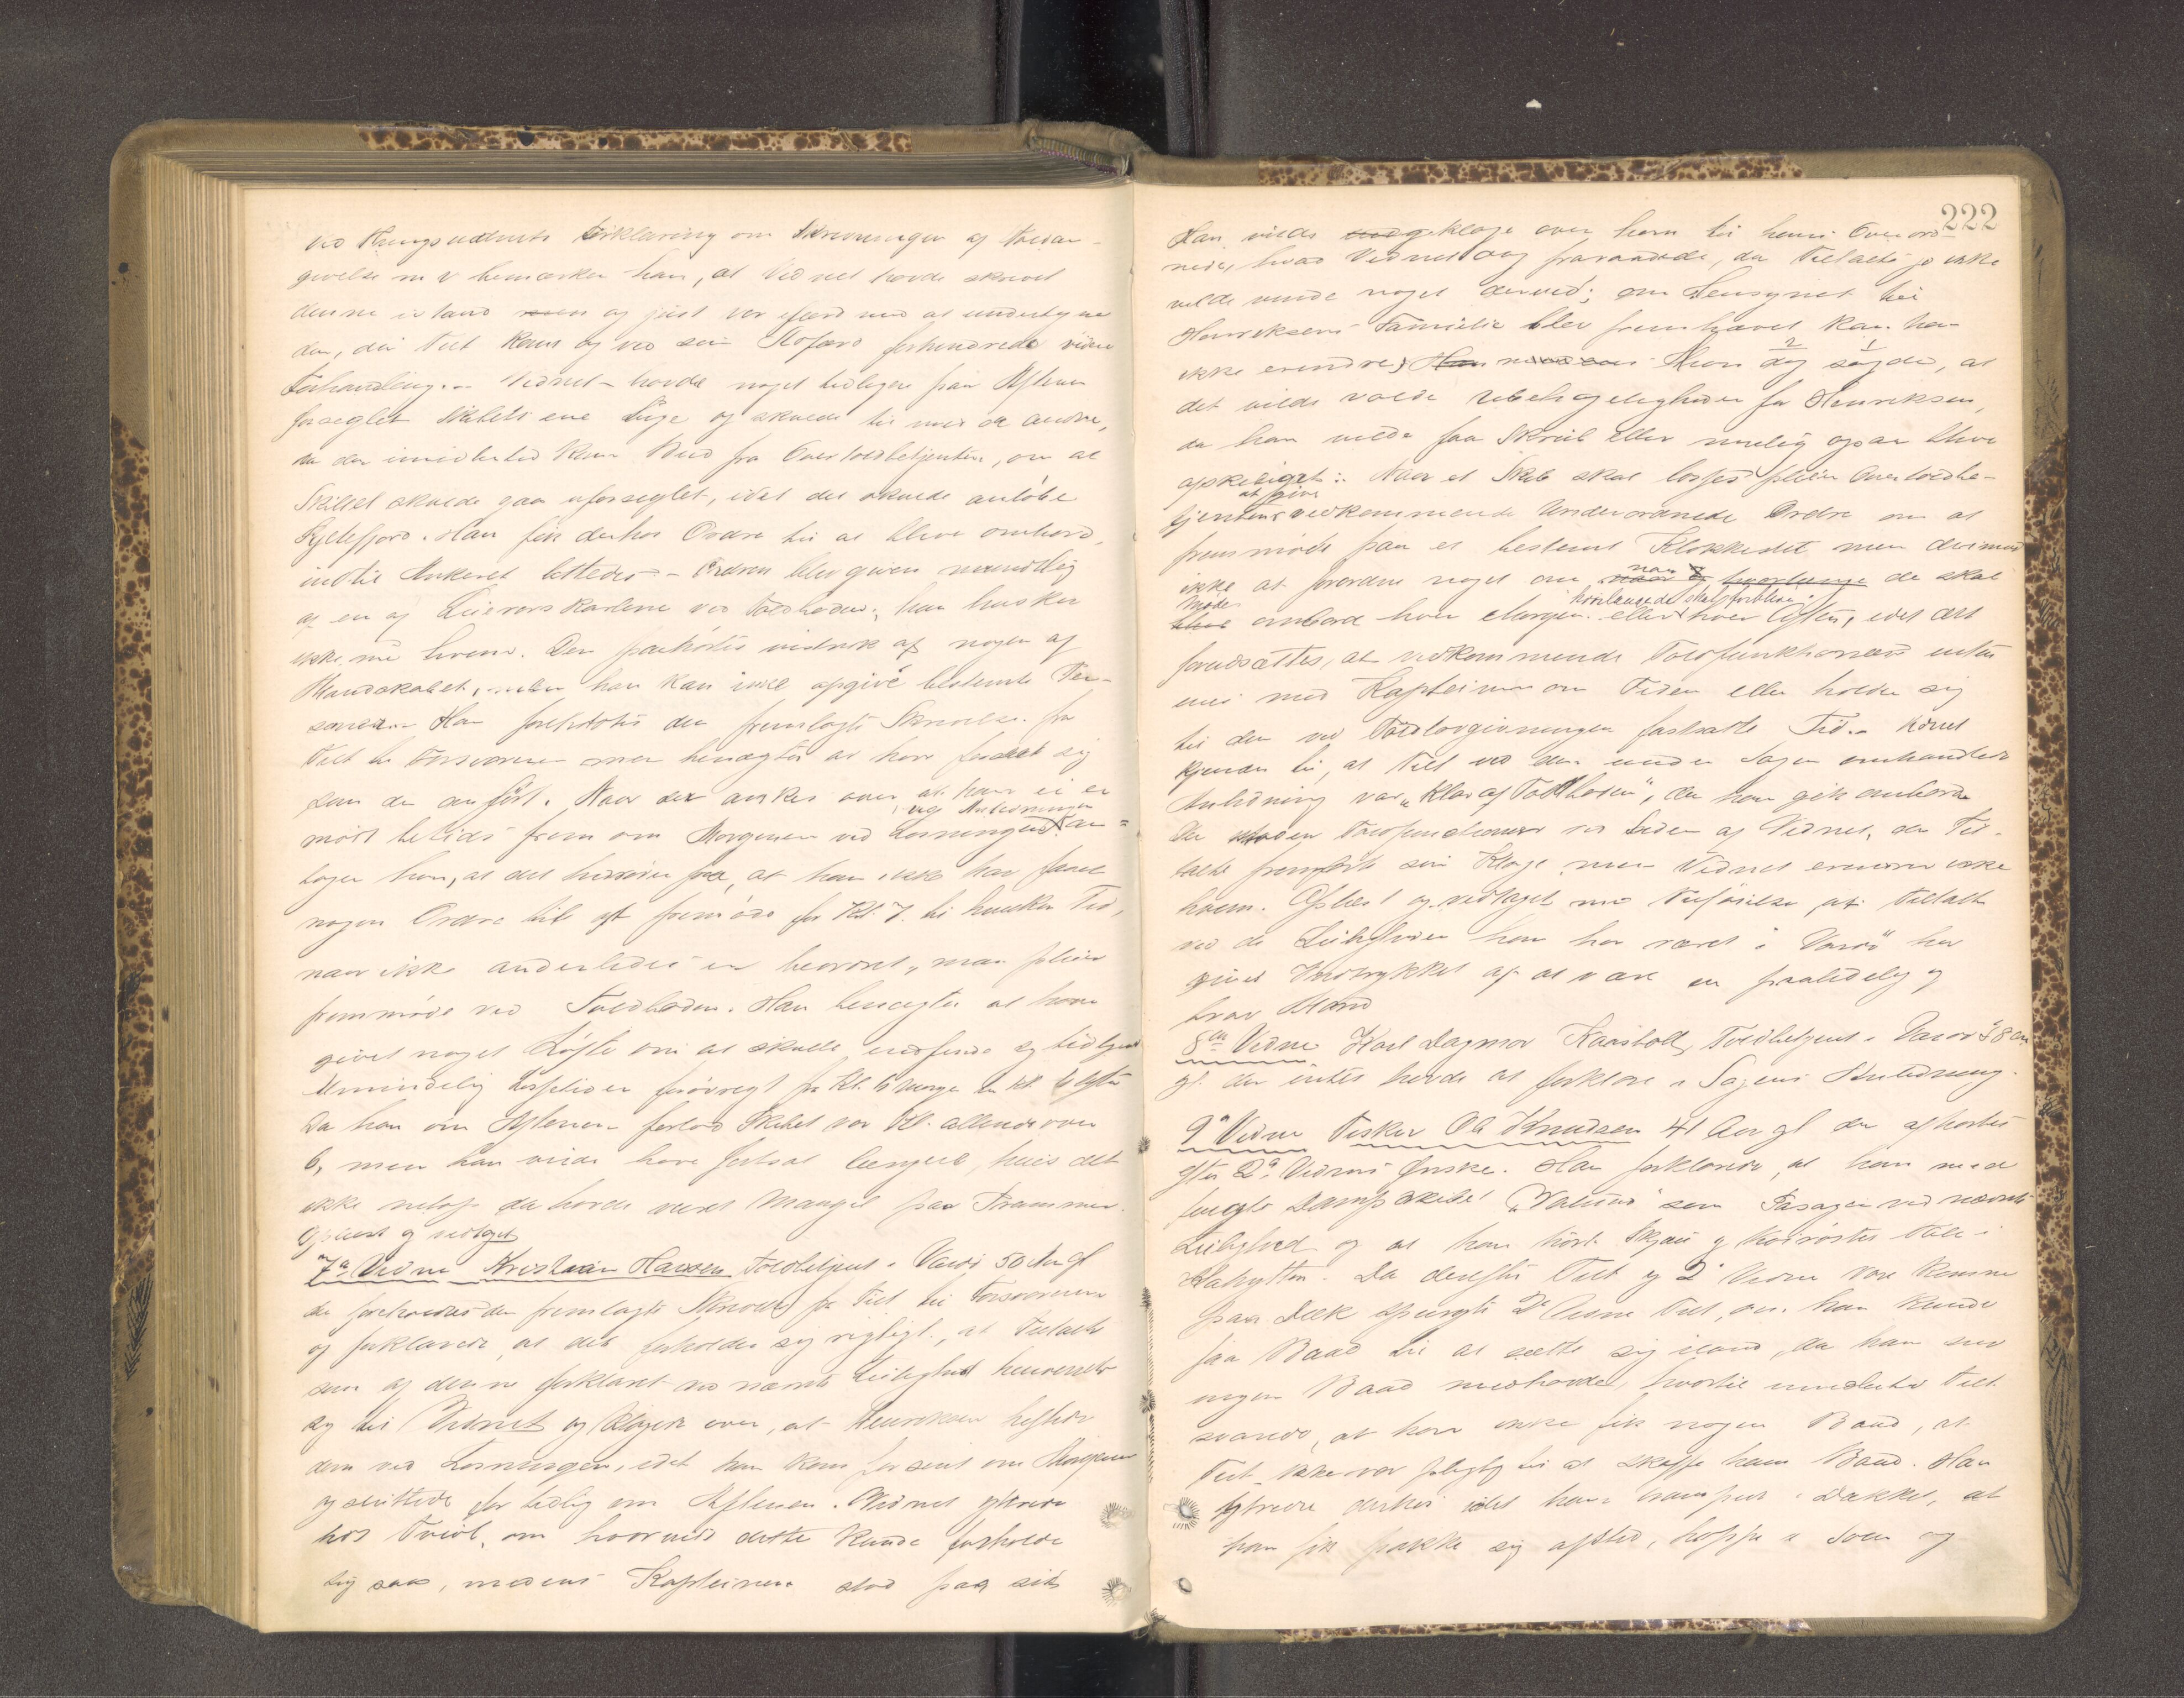 ved Krings edelseds Erklæring om Skrivningen af Toldan-
givelse m v bemærker han, at Vidnet havde skrevet
denne istand og just var ifærd med at undertegne
den, da Tilt kom og ved sin Atfærd forhindrede videre
Forhandling. - Vidnet havde noget tidligere paa Aftenen
forseglet Skibets ene Luge og skulde til med de andre,
da der imidlertid kom Bud fra Overtoldbetjenten, om at
Skibet skulde gaa uforseglet, idet det skulde anløbe
Kjøllefjord. Han fik derhos Ordre til at blive ombord,
indtil Ankeret lettedes - Ordren blev given mundtlig
af en af Leiervaskarlene ved Toldboden; han husker
ikke nu hvem. Den paahørtes vistnok af nogen af
Mandskabet, men han kan ikke opgive bestemte Per-
soner. Han foreholdtes den fremlagte Skrivelse fra
Tilt til Forsvareren men benægter at have forholdt sig
som der anført. Naar der ankes over at han ei er
mødt betids frem om Morgenen ved Losningen og Anledningen an-
tager han, at det hidrører fra, at han ikke har faaet
nogen Ordre til at fremmøde før Kl. 7. til hvilken Tid,
naar ikke anderledes er beordret, man pleier
fremmøde ved Toldboden. Han benægter at have
givet noget Løfte om at skulle indfinde sig tidligere
Almindelig Lossetid er forøvrigt fra Kl. 6 Morgen til Kl. 6 Aften
Da han om Aftenen forlod Skibet var Kl. allerede over
6, men han vilde have fortsat længere, hvis det
ikke netop da havde været Mangel paa Prammer.
Oplæst og vedtaget
7de Vidne Kristian Hansen Toldbetjent i Vardø 50 Aar gl
der foreholdtes den fremlagte Skrivelse fra Tilt til Forsvareren
og forklarede, at det forholder sig rigtigt, at Tiltalte
som af denne forklaret ved nævnte Leilighed henvendte
sig til Vidnet og klagede over, at Henriksen heftede
dem ved Losningen, idet han kom for sent om Morgenen
og sluttede for tidlig om Aftenen. Vidnet ytrede
hos Tvivl, om hvorvidt dette kunde forholde
sig saa, medens Kapteinen stod paa sit
222
Han vilde klage over ham til hans Overord-
nede, hvad Vidnet og fraraadede, da Tiltalte jo ikke
vilde vinde noget derved; om Hensynet til
Henriksens Familie blev fremhævet kan han
ikke erindre; Han dog sagde, at
det vilde volde Ubehageligheder for Henriksen,
da han vilde faa Skrub eller mulig ogsaa blive
afskediget. Naar et Skib skal losses pleier Overtoldbe-
tjenten at give vedkommende Underordnede Ordre om at
fremmøde paa et bestemt Klokkeslet men derimod
ikke at forordne noget om naar de skal
møde ombord hver Morgen eller hvorlænge de skal forblive hver Aften, idet det
forudsættes, at vedkommende Toldfunktionær enten
enes med Kapteinen om Tiden eller holder sig
til den ved Toldlovgivningen fastsatte Tid. - Vidnet
kjender til, at Tilt ved den under Sagen omhandlede
Anledning var "klar af Toldboden", da han gik ombord.
En anden Toldfunctionær sad ved Siden af Vidnet, da Til-
talte fremførte sin Klage, men Vidnet erindrer ikke
hvem. Oplæst og vedtaget med Tilføielse at Tiltalte
ved de Leiligheder han har været i Vardø har
givet Indtrykket af at være en paalidelig og
brav Mand
8de Vidne Karl Dagmar Haarstad, Toldbetjent i Vardø 38 Aar
gl. der intet havde at forklare i Sagens Anledning.
9de Vidne Fisker Ole Knudsen 41 Aar gl der afhørtes
efter 2det Vidnes Ønske. Han forklarede, at han med
fulgte Dampskibet "Valund" som Passager ved nævnte
Leilighed og at han hørte Skjæn og høirøstet Tale i
Kahytten. Da derefter Tilt og 2det Vidne vare komne
paa Dæk spurgte 2det Vidne Tilt, om han kunde
faa Baad til at sætte sig iland, da han ser
ingen Baad medhavde, hvortil imidlertid Tilt
svarede, at han ikke fik nogen Baad, at
Tilt ikke var pligtig til at skaffe ham Baad. Han
ytrede derhos idet han trampede i Dækket, at
han fik pakke sig afsted, hoppe i Søen og